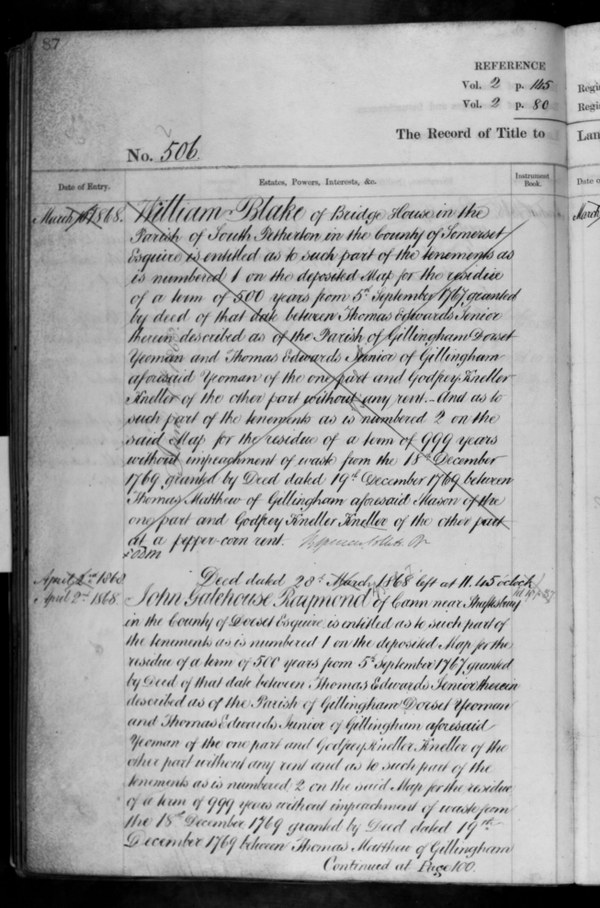 87
REFERENCE
Vol. 2 p. 145
Vol. 2 p. 80
The Record of Title to
No. 506.
Date of Entry.
Estates, Powers, Interests, &c.
Instrument Book.
March 1868. William Blake of Bridge House in the
Parish of South Petherton in the County of Somerset
Esquire is entitled as to such part of the tenements as
is numbered 1 on the deposited Map for the residue
of a term of 500 years from 5th September 1767 granted
by deed of that date between Thomas Edwards Senior
therein described as of the Parish of Gillingham Dorset
Yeoman and Thomas Edwards Junior of Gillingham
aforesaid Yeoman of the one part and Godfrey Kneller
Kneller of the other part without any rent. - And as to
such part of the tenements as is numbered 2 on the
said Map for the residue of a term of 999 years
without impeachment of waste from the 18th December
1769 granted by Deed dated 19th December 1769 between
Thomas Matthew of Gillingham aforesaid Mason of the
one part and Godfrey Kneller Kneller of the other part
at a pepper-corn rent.
April 2nd 1868 Deed dated 28th March 1868 left at 11.45 oclock
April 2nd 1868 John Galehouse Raymond of Cann near Shaftesbury
in the County of Dorset Esquire is entitled as to such part of
the tenements as is numbered 1 on the deposited Map for the
residue of a term of 500 years from 5th September 1767 granted
by Deed of that date between Thomas Edwards Senior therein
described as of the Parish of Gillingham Dorset Yeoman
and Thomas Edwards Junior of Gillingham aforesaid
Yeoman of the one part and Godfrey Kneller Kneller of the
other part without any rent and as to such part of the
tenements as is numbered 2 on the said Map for the residue
of a term of 999 years without impeachment of waste from
the 18th December 1769 granted by Deed dated 19th
December 1769 between Thomas Matthew of Gillingham
Continued at Page 100.
Regi
Regi
Lan
Date o
March